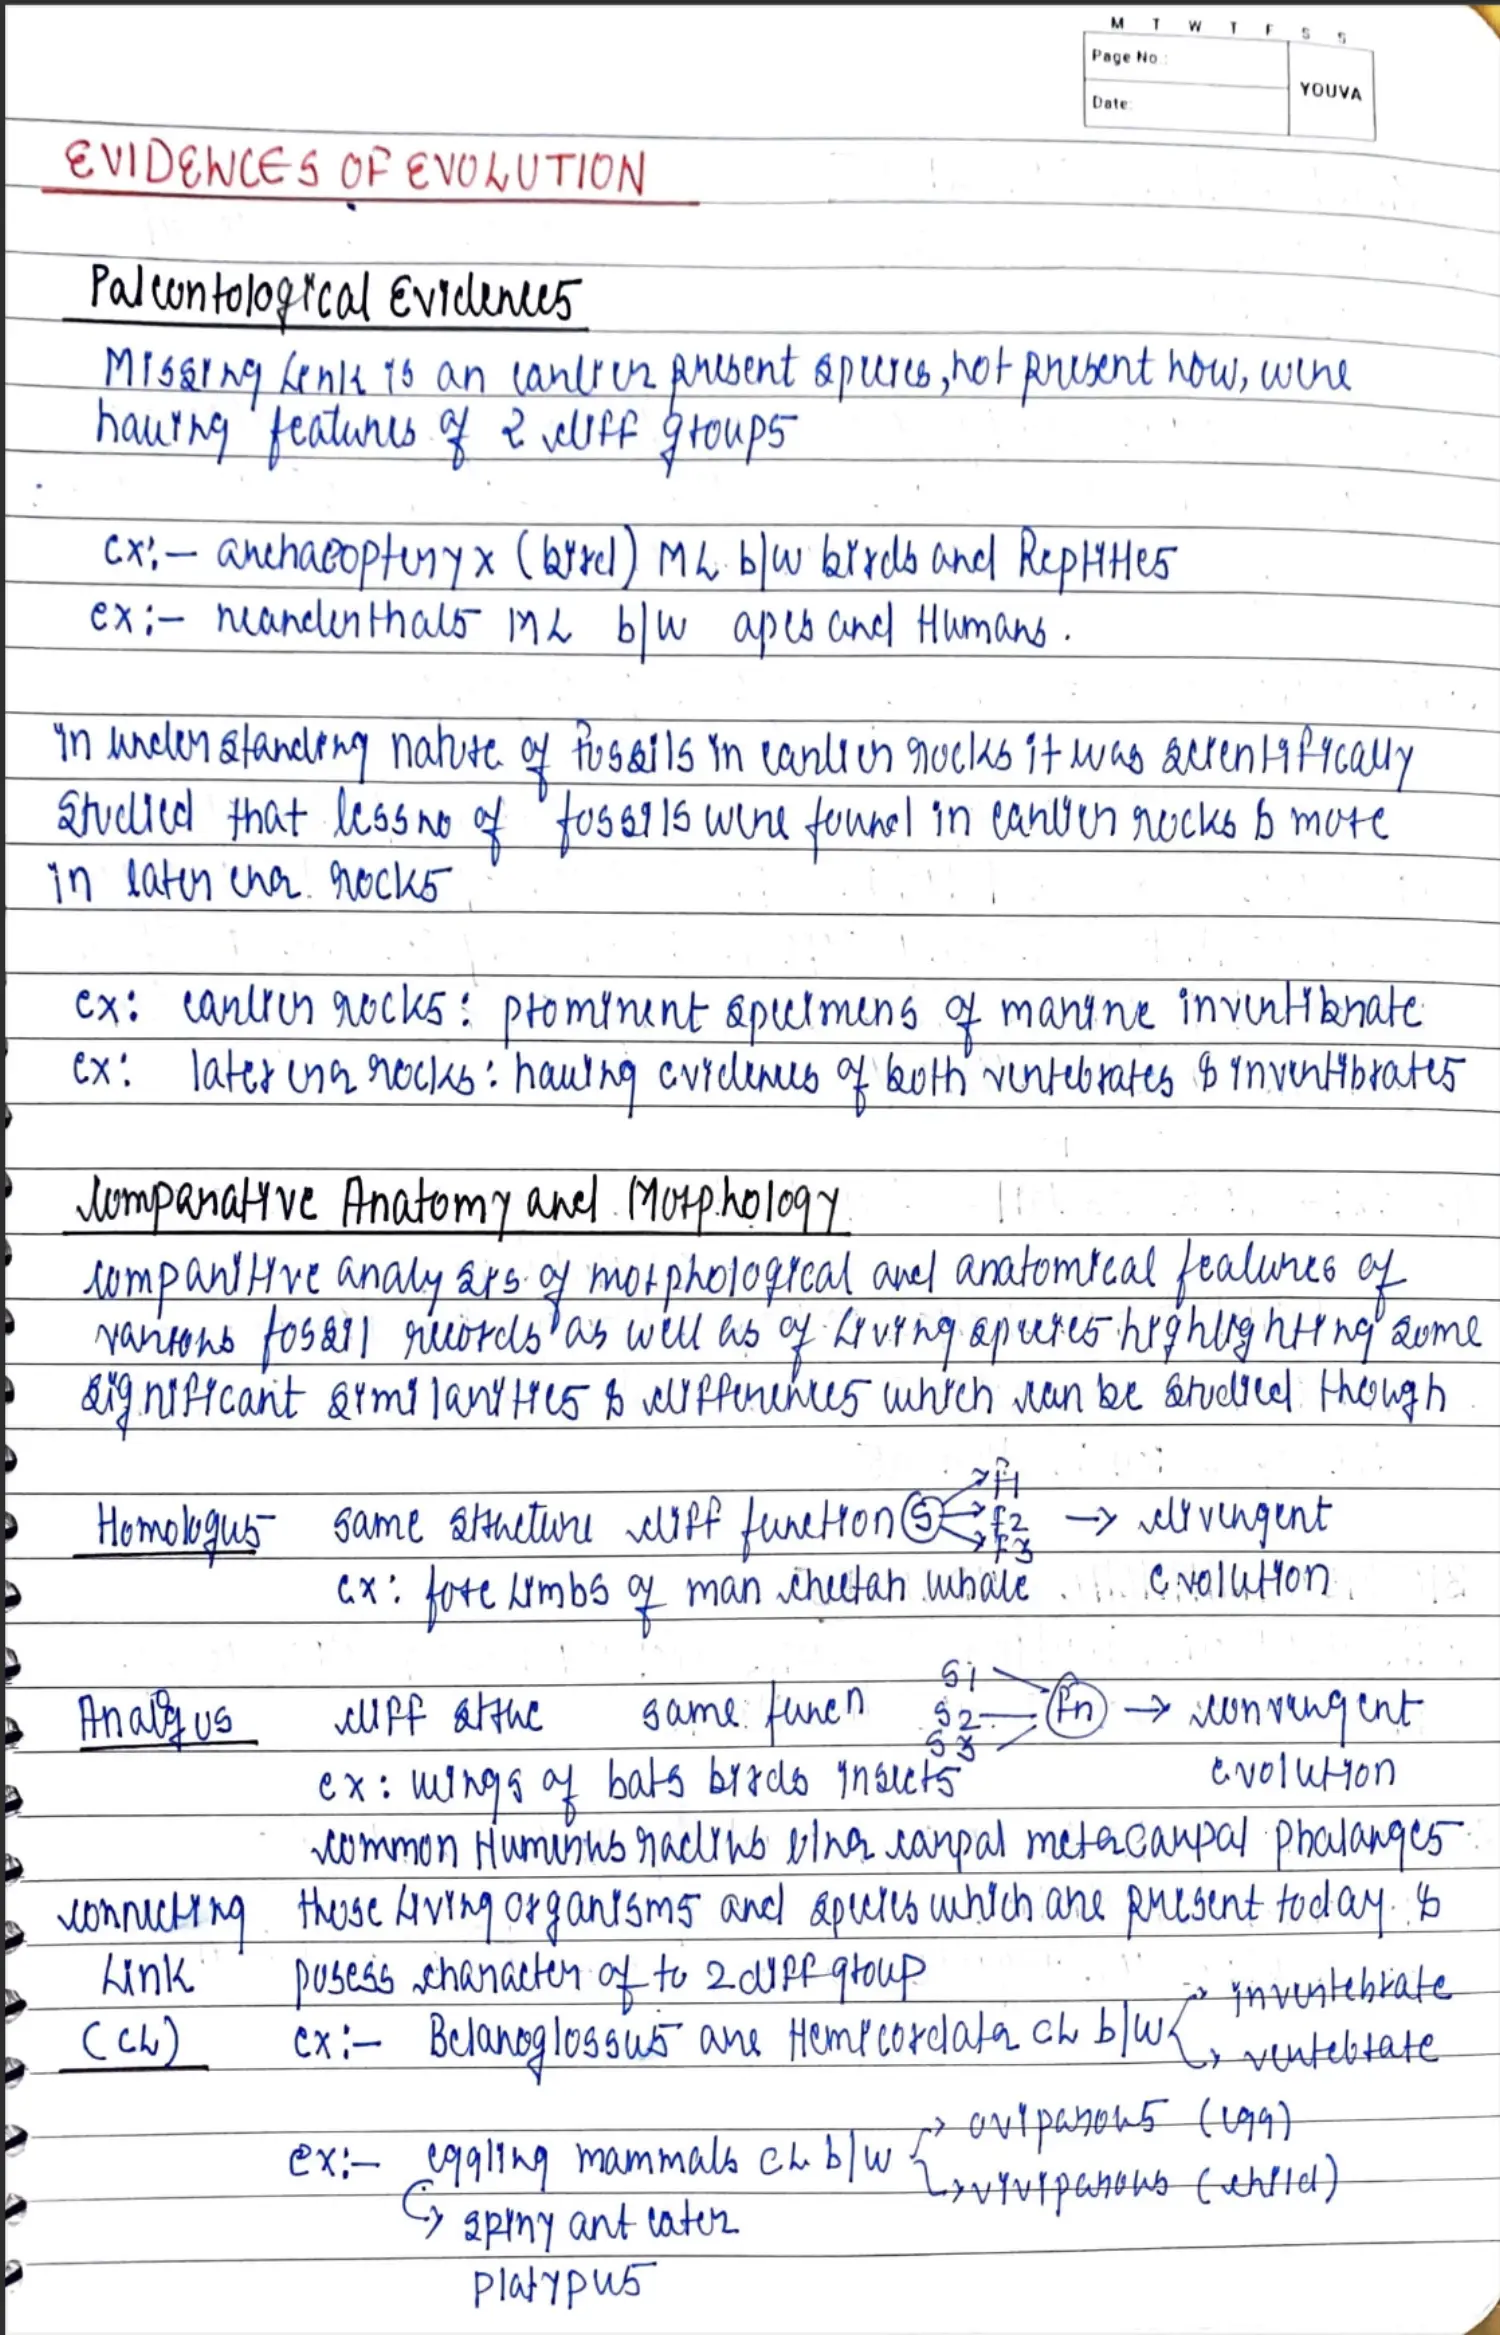 M T W T F S S
Page No.:
YOUVA
Date:
EVIDENCES OF EVOLUTION
Paleontological Evidences
Missing Link is an earlier present species, not present now, were
having features of 2 diff groups
ex:- archaeopteryx (bird) ML b/w birds and Reptiles
ex:- neanderthals ML b/w apes and Humans.
in understanding nature of fossils in earlier rocks it was scientifically
studied that less no of fossils were found in earlier rocks & more
in later era rocks
ex: earlier rocks: prominent specimens of marine invertibrate
ex: later era rocks: having evidences of both vertebrates & invertibrates
Comparative Anatomy and Morphology
comparitive analysis of morphological and anatomical features of
various fossil records as well as of living species highlighting some
significant similarities & differences which can be studied though
Homologus same structure diff function S F1 F2 F3 → divergent
ex: fore limbs of man cheetah whale evolution
Analgus diff struc same funcn S1 S2 S3 Fn → convergent
ex: wings of bats birds insects evolution
common Humerus radius ulna carpal metacarpal phalanges
connecting those living organisms and species which are present today &
Link posess character of to 2 diff group
(CL) ex:- Belanoglossus are Hemicordata CL b/w → invertebrate
→ vertebrate
ex:- eggling mammals CL b/w → oviparous (egg)
→ viviparous (child)
→ spiny ant eater
platypus